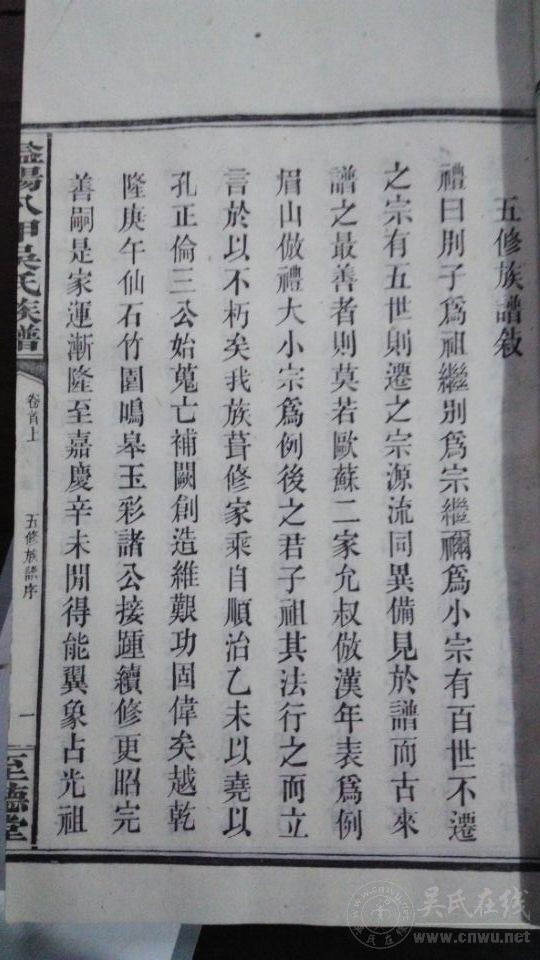 五修族譜敍
禮曰別子爲祖繼別爲宗繼禰爲小宗有百世不遷
之宗有五世則遷之宗源流同異備見於譜而古來
譜之最善者則莫若歐蘇二家允叔倣漢年表爲例
眉山倣禮大小宗爲例後之君子祖其法行之而立
言於以不朽矣我族葺修家乘自順治乙未以堯以
孔正倫三公始蒐亡補闕創造維艱功固偉矣越乾
隆庚午仙石竹園鳴皋玉彩諸公接踵續修更昭完
善嗣是家運漸隆至嘉慶辛未閒得能翼象占光祖
益陽八甲吳氏族譜
卷首上
五修族譜序
一
至德堂
吴氏在线
www.cnwu.net
吴氏在线